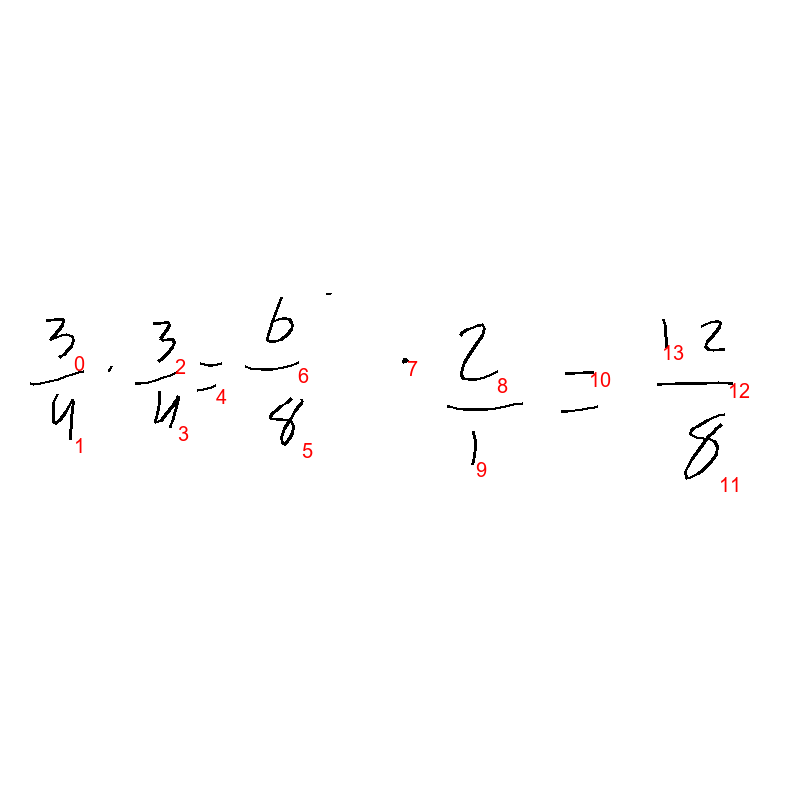 3/4 · 3/4 = 6/8 · 2/1 = 12/8
0 1 2 3 4 5 6 7 8 9 10 11 12 13